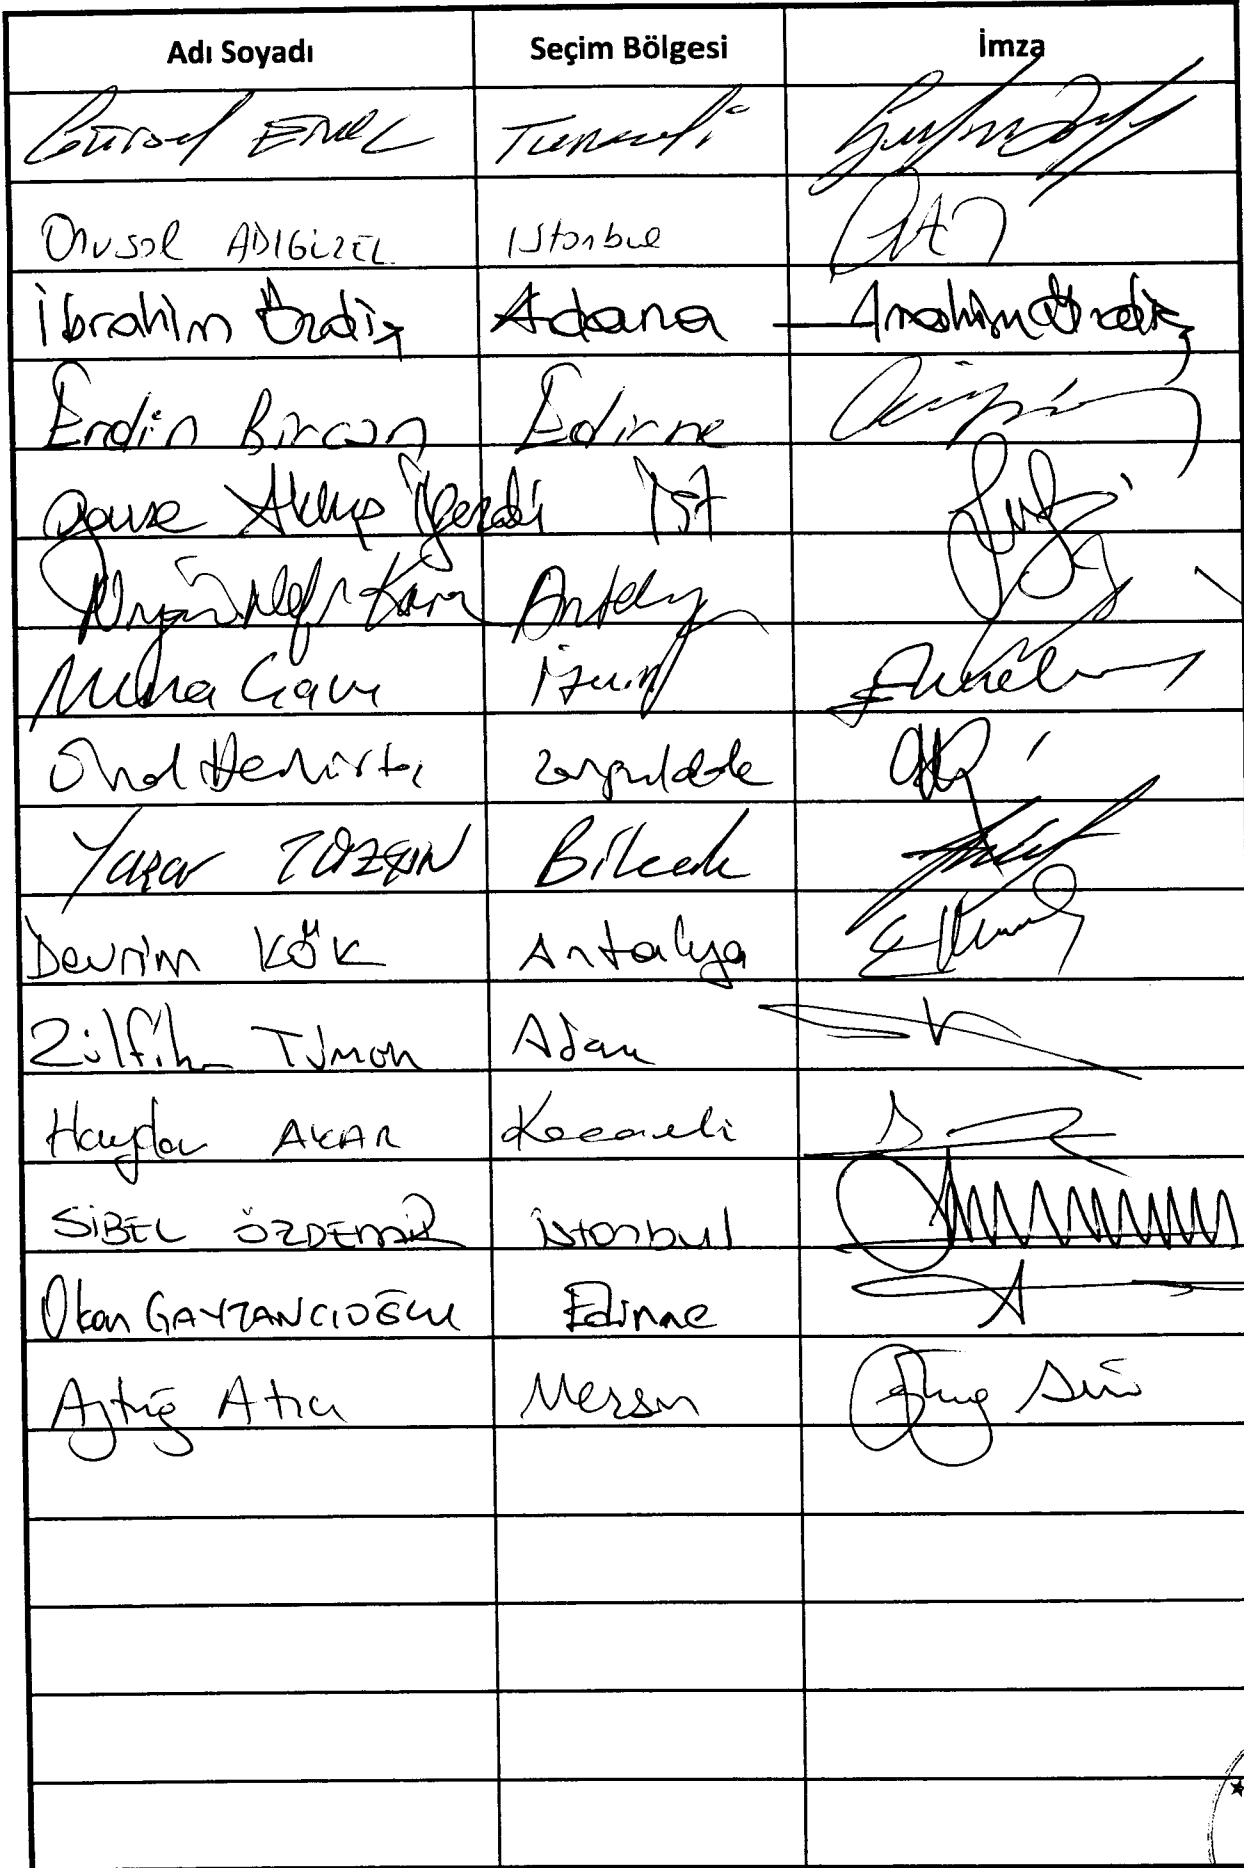 Adı Soyadı Seçim Bölgesi İmza
Gürsel EROL Tunceli
Onursal ADIGÜZEL Istanbul
İbrahim Özdiş Adana İbrahim Özdiş
Erdin Bircan Edirne
Gamze Akkuş İlgezdi İst
Niyazi Nefi Kara Antalya
Musa Çam İzmir
Ünal Demirtaş Zonguldak
Yaşar TÜZÜN Bilecik
Devrim KÖK Antalya
Zülfikar Tümer Adana
Haydar AKAR Kocaeli
SİBEL ÖZDEMİR İstanbul
Okan GAYTANCIOĞLU Edirne
Aytuğ Atıcı Mersin